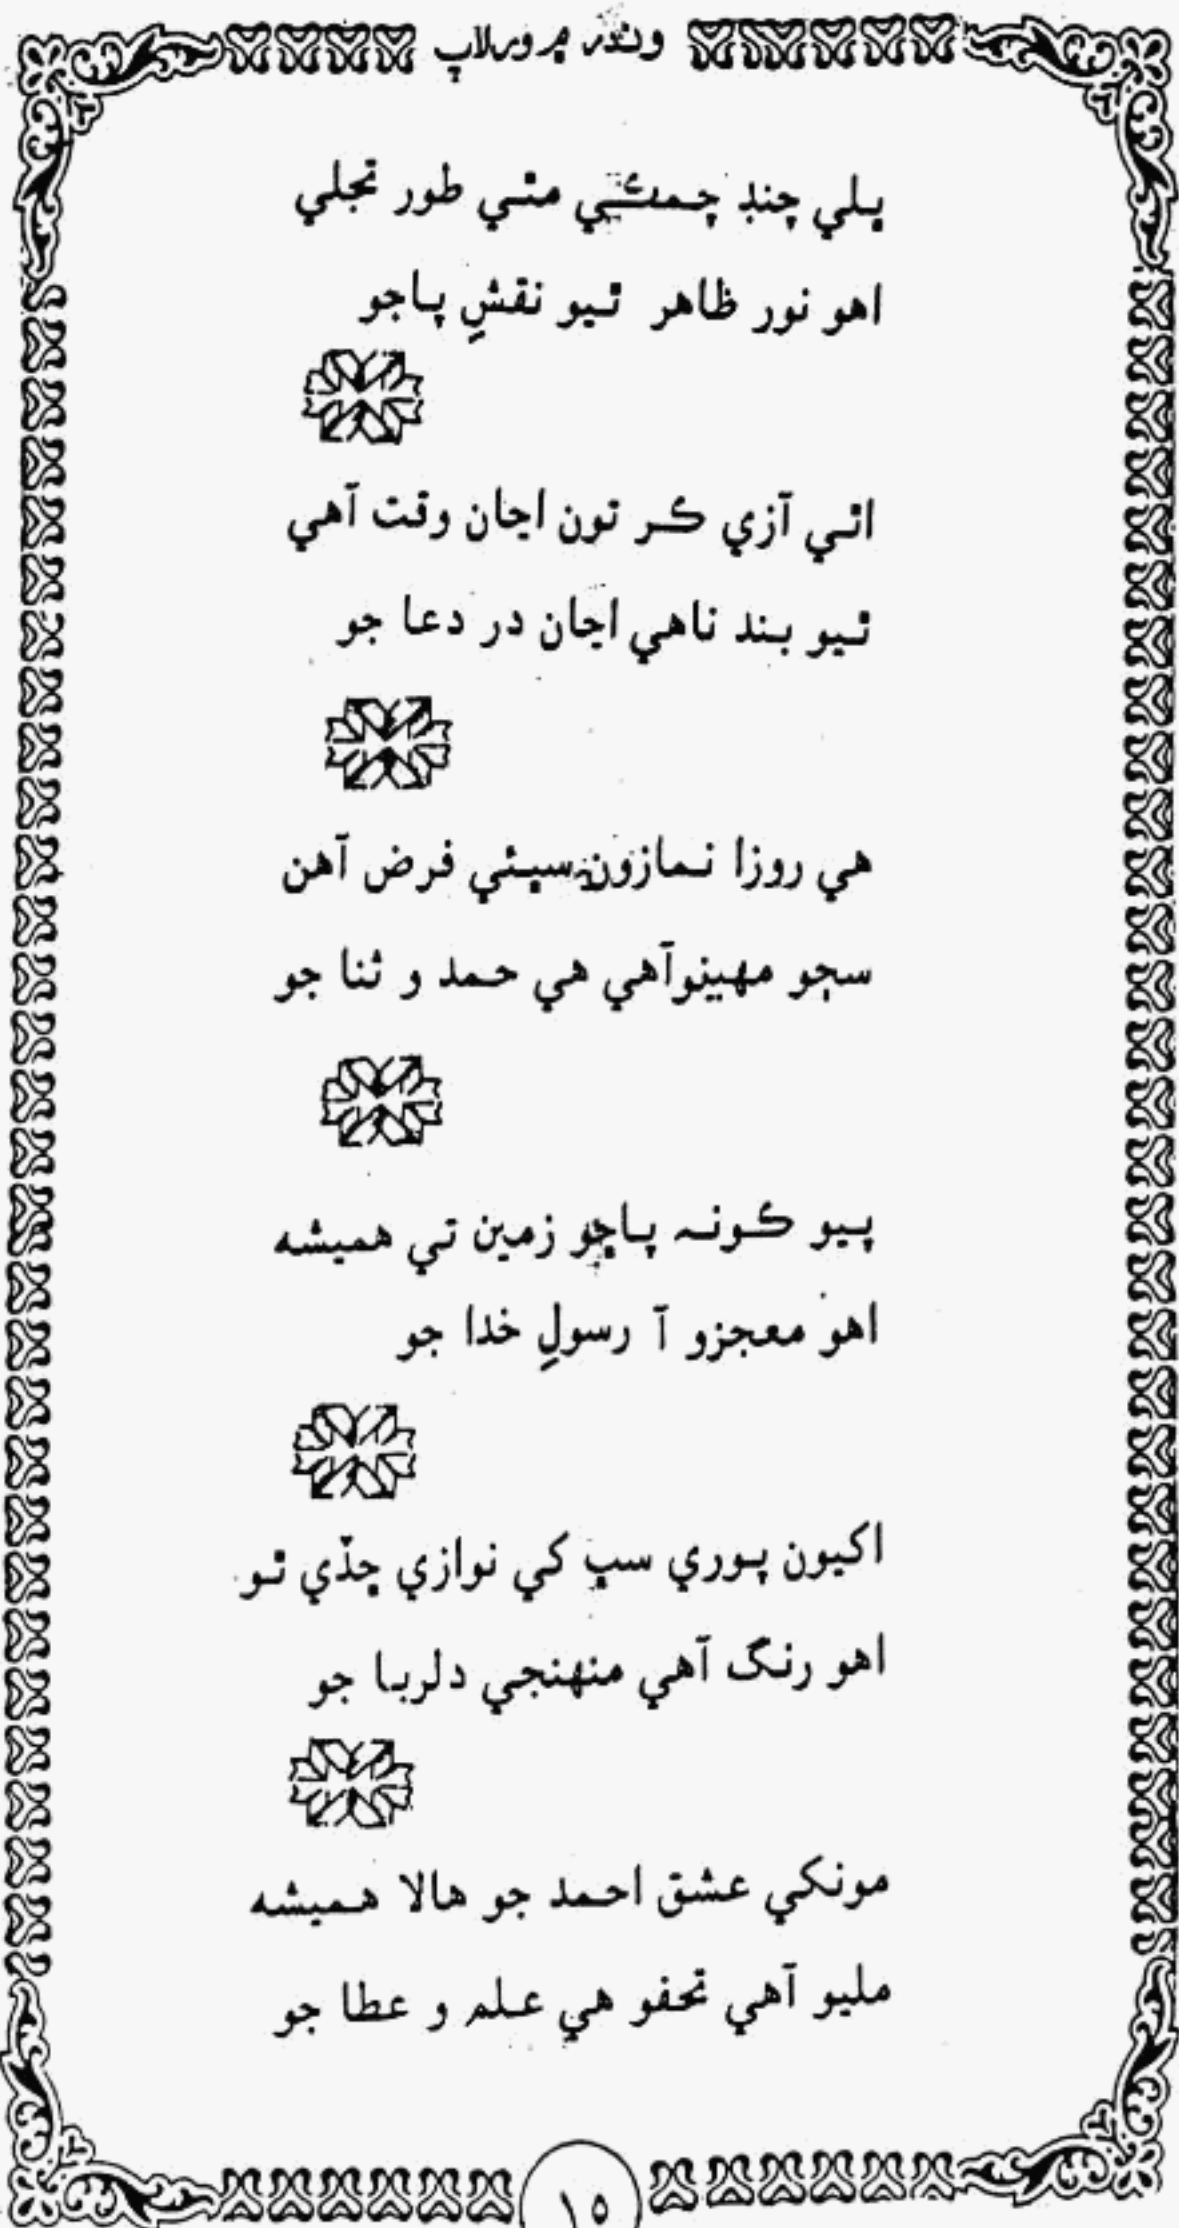 وندر ۾ ورلاپ
ڀلي چنڊ چمڪي مٿي طور تجلي
اهو نور ظاهر ٿيو نقشِ پاجو
اٿي آزي ڪر تون اڃان وقت آهي
ٿيو بند ناهي اڃان در دعا جو
هي روزا نمازون سڀئي فرض آهن
سڄو مهينو آهي هي حمد و ثنا جو
پيو ڪونہ پاڇو زمين تي هميشہ
اهو معجزو آ رسولِ خدا جو
اکيون پوري سڀ کي نوازي ڇڏي ٿو
اهو رنگ آهي منهنجي دلربا جو
مونکي عشق احمد جو هالا هميشہ
مليو آهي تحفو هي علم و عطا جو
١٥